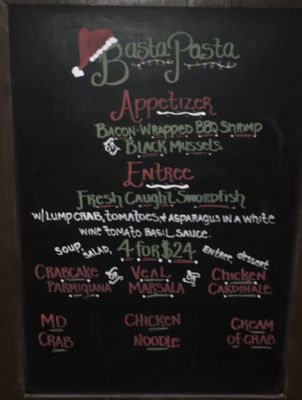 Basta Pasta
Appetizer
Bacon-Wrapped BBQ Shrimp
or Black Mussels
Entree
Fresh Caught Swordfish
w/ Lump Crab, Tomatoes, & Asparagus in a White
Wine Tomato Basil Sauce.
Soup, Salad, 4 for $24 Entree Dessert
Crabcake or Veal or Chicken
Parmigiana Marsala Cardinale
MD Chicken Cream
Crab Noodle of Crab